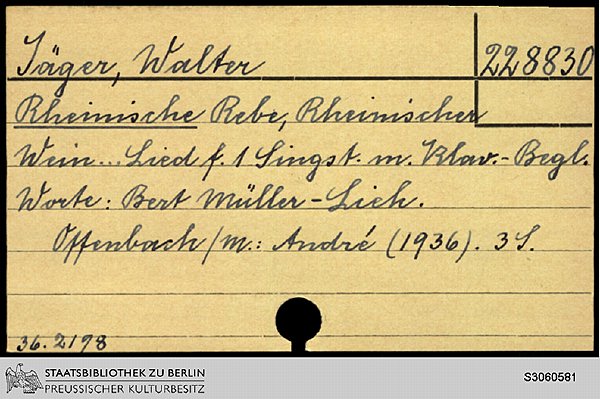 Jäger, Walter 228830
Rheinische Rebe, Rheinischer
Wein... Lied f. 1 Singst. m. Klav.-Begl.
Worte: Bert Müller-Lich.
Offenbach/M.: André (1936). 3 S.
36.2198
STAATSBIBLIOTHEK ZU BERLIN
PREUSSISCHER KULTURBESITZ
S3060581